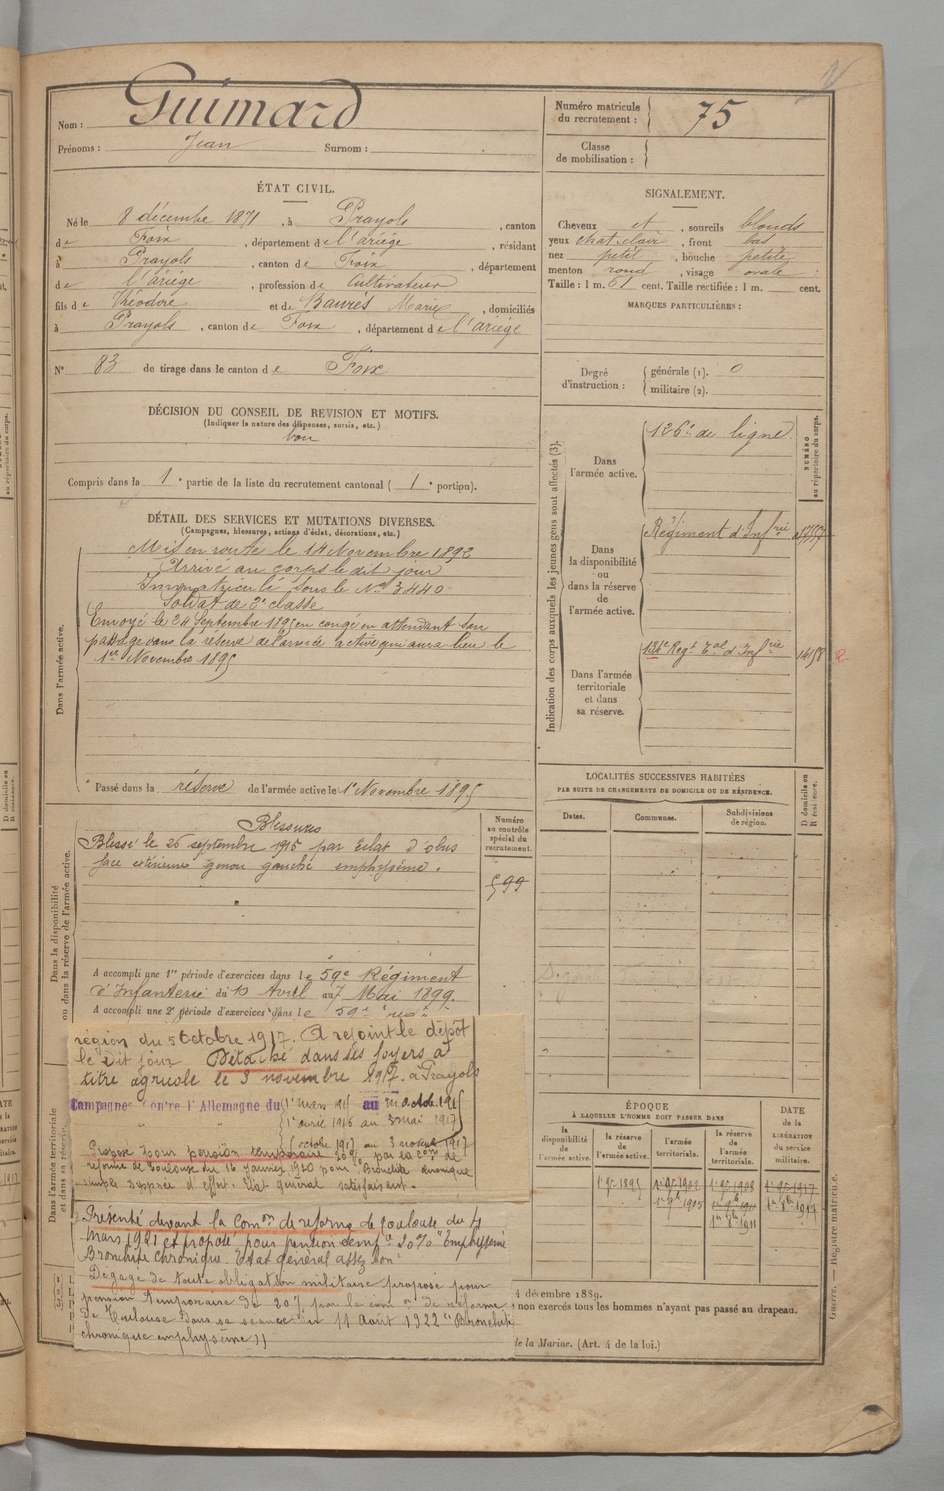 Nom : Guimard
Prénoms : Jean Surnom :
Numéro matricule du recrutement : 75
Classe de mobilisation :
ÉTAT CIVIL.
Né le 8 décembre 1871, à Prayols, canton
de Foix, département de l'ariège, résidant
à Prayols, canton de Foix, département
de l'ariège, profession de Cultivateur
fils de Théodore et de Baurès Marie, domiciliés
à Prayols, canton de Foix, département de l'ariège
N° 83 de tirage dans le canton de Foix
SIGNALEMENT.
Cheveux et, sourcils blonds
yeux chat. clair, front bas
nez petit, bouche petite
menton rond, visage ovale
Taille : 1 m. 61 cent. Taille rectifiée : 1 m. cent.
MARQUES PARTICULIÈRES :
Degré d'instruction : générale (1). 0
militaire (2).
DÉCISION DU CONSEIL DE REVISION ET MOTIFS.
(Indiquer la nature des dispenses, sursis, etc.)
bon
Compris dans la 1e partie de la liste du recrutement cantonal ( 1e portion).
DÉTAIL DES SERVICES ET MUTATIONS DIVERSES.
(Campagnes, blessures, actions d'éclat, décorations, etc.)
Dans l'armée active.
Mis en route le 14 Novembre 1892
Arrivé au corps le dit jour
Immatriculé sous le No 3440
Soldat de 2e classe
Envoyé le 24 Septembre 1895 en congé en attendant son
passage dans la réserve de l'armée active qui aura lieu le
1er Novembre 1895
Passé dans la réserve de l'armée active le 1er Novembre 1895
Indication des corps auxquels les jeunes gens sont affectés (3).
NUMÉRO au répertoire du corps.
Dans l'armée active.
126e de ligne
Dans la disponibilité ou dans la réserve de l'armée active.
Régiment d'Infrie
Dans l'armée territoriale et dans sa réserve.
Regt Tal d'Infrie 1458
LOCALITÉS SUCCESSIVES HABITÉES
PAR SUITE DE CHANGEMENTS DE DOMICILE OU DE RÉSIDENCE.
Dates. Communes. Subdivisions de région.
D domicile ou R résidence.
Dans la disponibilité ou dans la réserve de l'armée active.
Numéro au contrôle spécial du recrutement.
599
Blessures
Blessé le 26 septembre 1915 par Eclat d'obus
face extérieure genou gauche emphysème.
A accompli une 1re période d'exercices dans le 59e Régiment
d'Infanterie du 10 Avril au 7 Mai 1899.
A accompli une 2e période d'exercices dans le 59e
Dans l'armée territoriale et dans sa réserve.
région du 5 Octobre 1917. A rejoint le dépôt
le dit jour Détaché dans ses foyers à
titre agricole le 3 novembre 1917. à Prayols
Campagnes contre l'Allemagne du 1er mars 1915 au
1er avril 1916 au 3 mai 1917
octobre 1917 au 3 novembre 1917
Proposé pour pension temporaire 20% par la com de
réforme de Toulouse du 16 janvier 1920 pour Bronchite chronique
simple sypnée d'effort. Etat général satisfaisant.
Présenté devant la Comon de réforme de Toulouse du 4
mars 1921 et proposé pour pension 20% "Emphysème
Bronchite chronique. Etat général assez bon
Dégagé de toute obligation militaire proposé pour
pension temporaire de 20% par la comon de réforme
de Toulouse dans sa séance du 11 Août 1922 "Bronchite
chronique emphysème"
ÉPOQUE
À LAQUELLE L'HOMME DOIT PASSER DANS
la disponibilité de l'armée active.
la réserve de l'armée active.
l'armée territoriale.
la réserve de l'armée territoriale.
DATE DE LA LIBÉRATION DU SERVICE MILITAIRE.
4 décembre 1889.
non exercés tous les hommes n'ayant pas passé au drapeau.
de la Marine. (Art. 4 de la loi.)
Guerre. — Registre matricule.